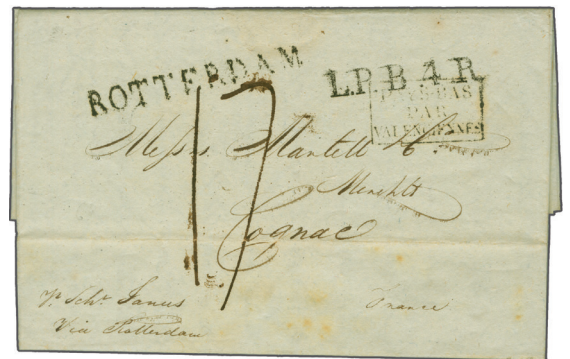 ROTTERDAM
L.P.B.4.R.
PAYS-BAS
PAR
VALENCIENNES
17
Messrs. Martell & Co.
Merchts
Cognac
Pr. Schr. Janus
Via Rotterdam
France